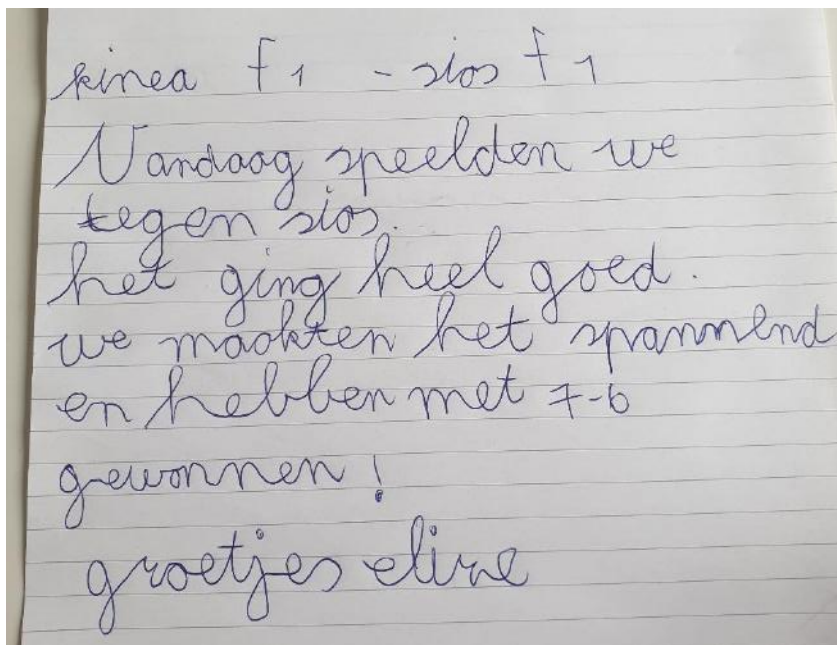 kinea f1 - sios f1
Vandaag speelden we
tegen sios.
het ging heel goed.
we maakten het spannend
en hebben met 7-6
gewonnen!
groetjes eline